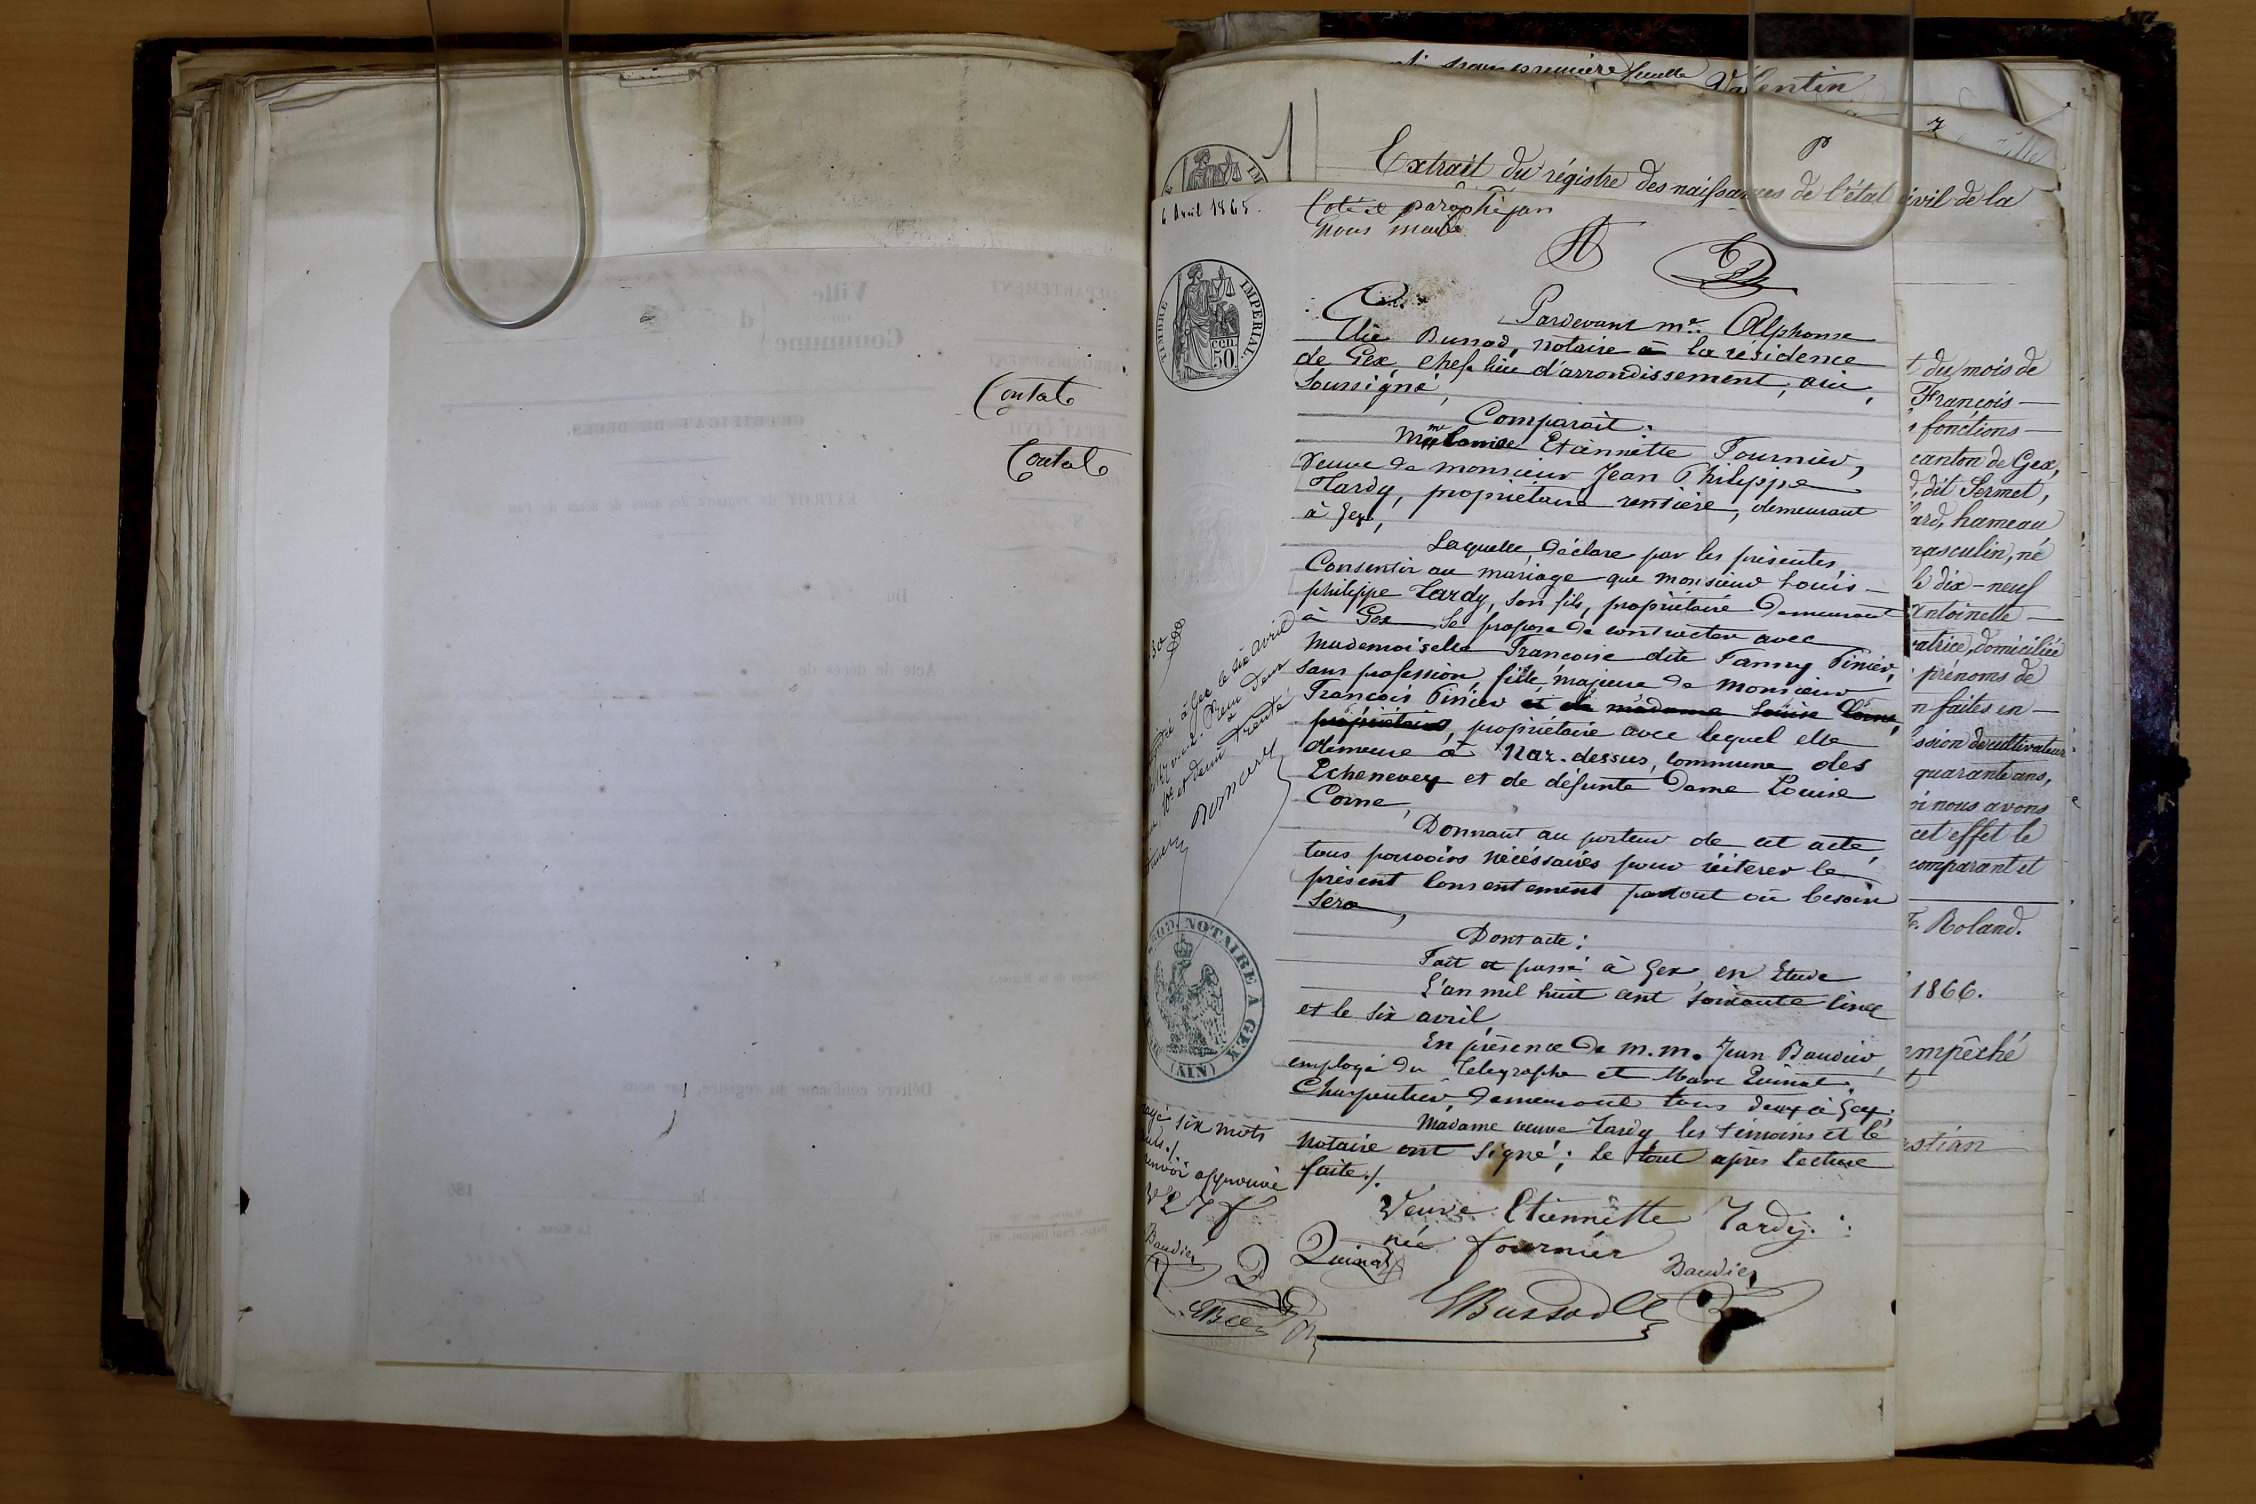 Contat
Contat
Valentin
Extrait du régistre des naissances de l'état civil de la
6 Avril 1865.
Coté et paraphé par
nous maire
TIMBRE IMPERIAL.
50 CEN
Pardevant Me. Alphonse
Elie Bussod, notaire à la résidence
de Gex, chef lieu d'arrondissement, ain,
Soussigné,
Comparait:
Mme Etiennette Fournier,
veuve de monsieur Jean Philippe
Tardy, propriétaire rentière, demeurant
à Gex,
Laquelle déclare par les présentes,
Consentir au mariage que monsieur Louis-
philippe Tardy, son fils, propriétaire demeurant
à Gex se propose de contracter avec
Mademoiselle Françoise dite Fanny Pinier,
sans profession, fille majeure de monsieur
François Pinier et de madame Louise Corne,
propriétaires, propriétaire avec lequel elle
demeure à Naz-dessus, commune des
Echenevex et de défunte Dame Louise
Corne,
Donnant au porteur de cet acte,
tous pouvoirs nécéssaires pour réiterer le
présent Consentement partout où besoin
sera,
Dont acte:
Fait et passé à Gex, en Etude
L'an mil huit cent soixante cinq
et le six avril
En présence de M.M. Jean Baudier,
employé du Télégraphe et Marc Quinat,
Charpentier, demeurant tous deux à Gex;
Madame veuve Tardy les témoins et le
notaire ont signé; le tout après lecture
faite./.
Veuve Etiennette Tardy
née fournier
Quinat
Baudier
Bussod
à Gex le six avril
deux
et demi trente
NOTAIRE A GEX
(AIN)
rayé six mots
nuls./.
renvoi approuvé
Baudier
t du mois de
François—
s fonctions—
canton de Gex,
dit Sermet,
hameau
masculin, né
le dix-neuf
Antoinette—
domiciliée
prénoms de
n faites en—
ssion de cultivateur
quarante ans,
nous avons
cet effet le
comparant et
Roland.
1866.
empêché